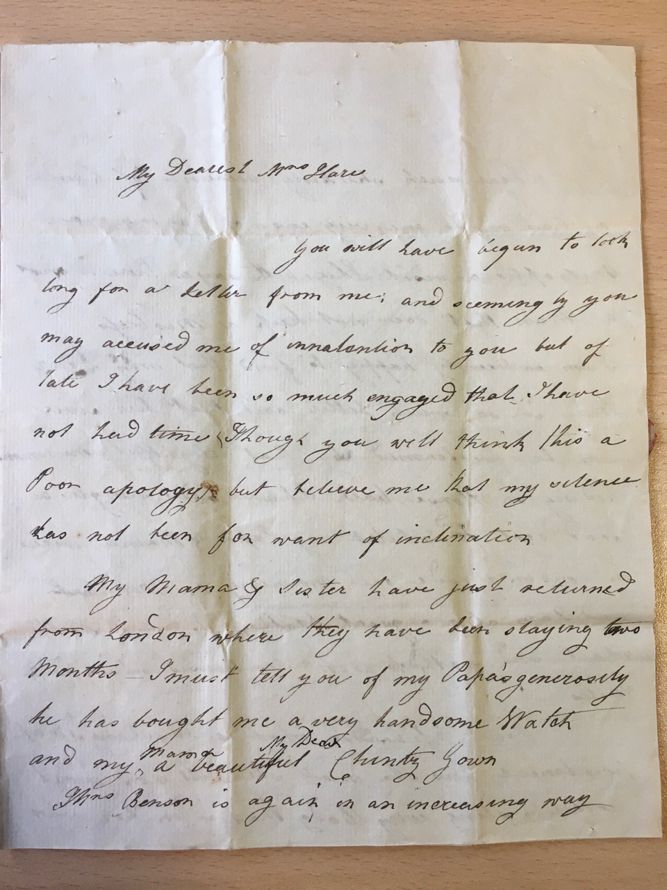 My Dearest Mrs Hare
You will have begun to look
long for a letter from me; and seeming by you
may accused me of innatention to you but of
late I have been so much engaged that I have
not had time (Though you will think this a
Poor apology) but believe me that my silence
has not been for want of inclination
My Mama & Sister have just returned
from London where they have been staying two
Months – I must tell you of my Papa's generosity
he has bought me a very handsome Watch
and my Mama a beautiful Chintz Gown
My Dear
Mrs Benson is again in an increasing way